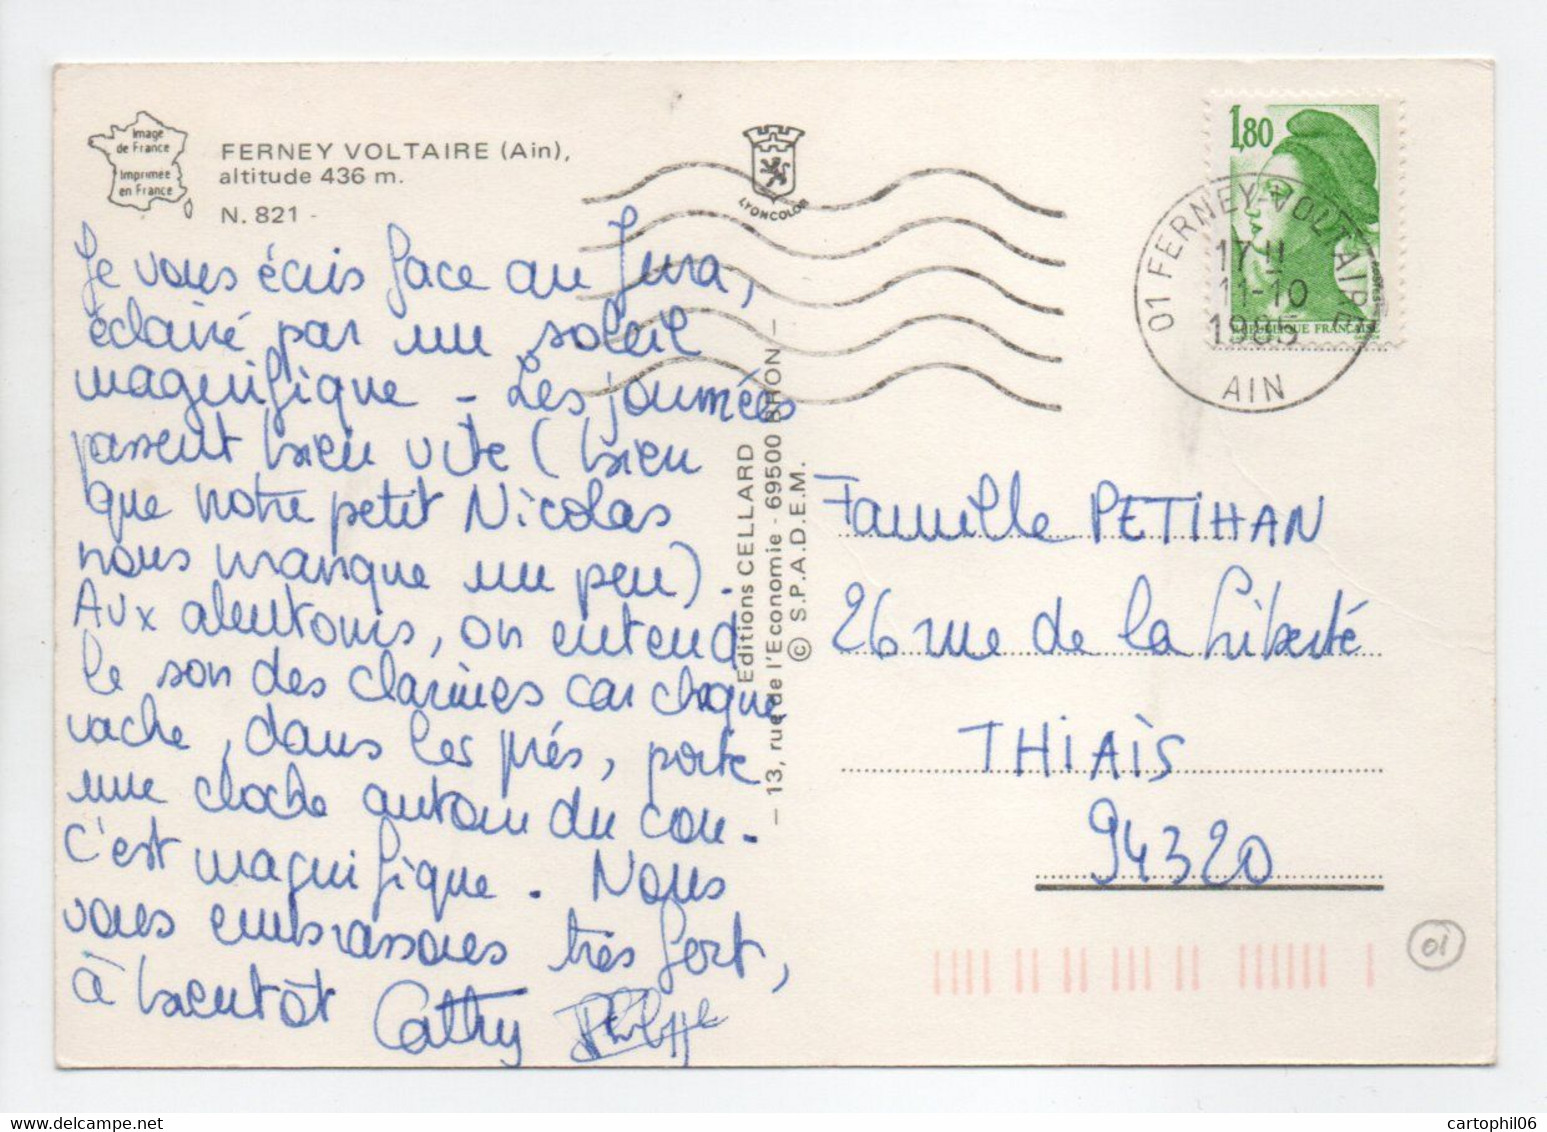 Image
de France
Imprimée
en France
FERNEY VOLTAIRE (Ain),
altitude 436 m.
N. 821 -
LYONCOLOR
Je vous écris face au Jura,
éclairé par un soleil
magnifique - Les journées
passent bien vite (bien
que notre petit Nicolas
nous manque un peu).
Aux alentours, on entend
le son des clarines car chaque
vache, dans les prés, porte
une cloche autour du cou.
C'est magnifique. Nous
vous embrassons très fort,
à bientôt Cathy Philippe
Editions CELLARD
— 13, rue de l'Economie - 69500 BRON —
© S.P.A.D.E.M.
1,80
REPUBLIQUE FRANÇAISE
01 FERNEY-VOLTAIRE
17 H
11-10
1985
AIN
Famille PETIHAN
26 rue de la Liberté
THIAIS
94320
01
cartophil06